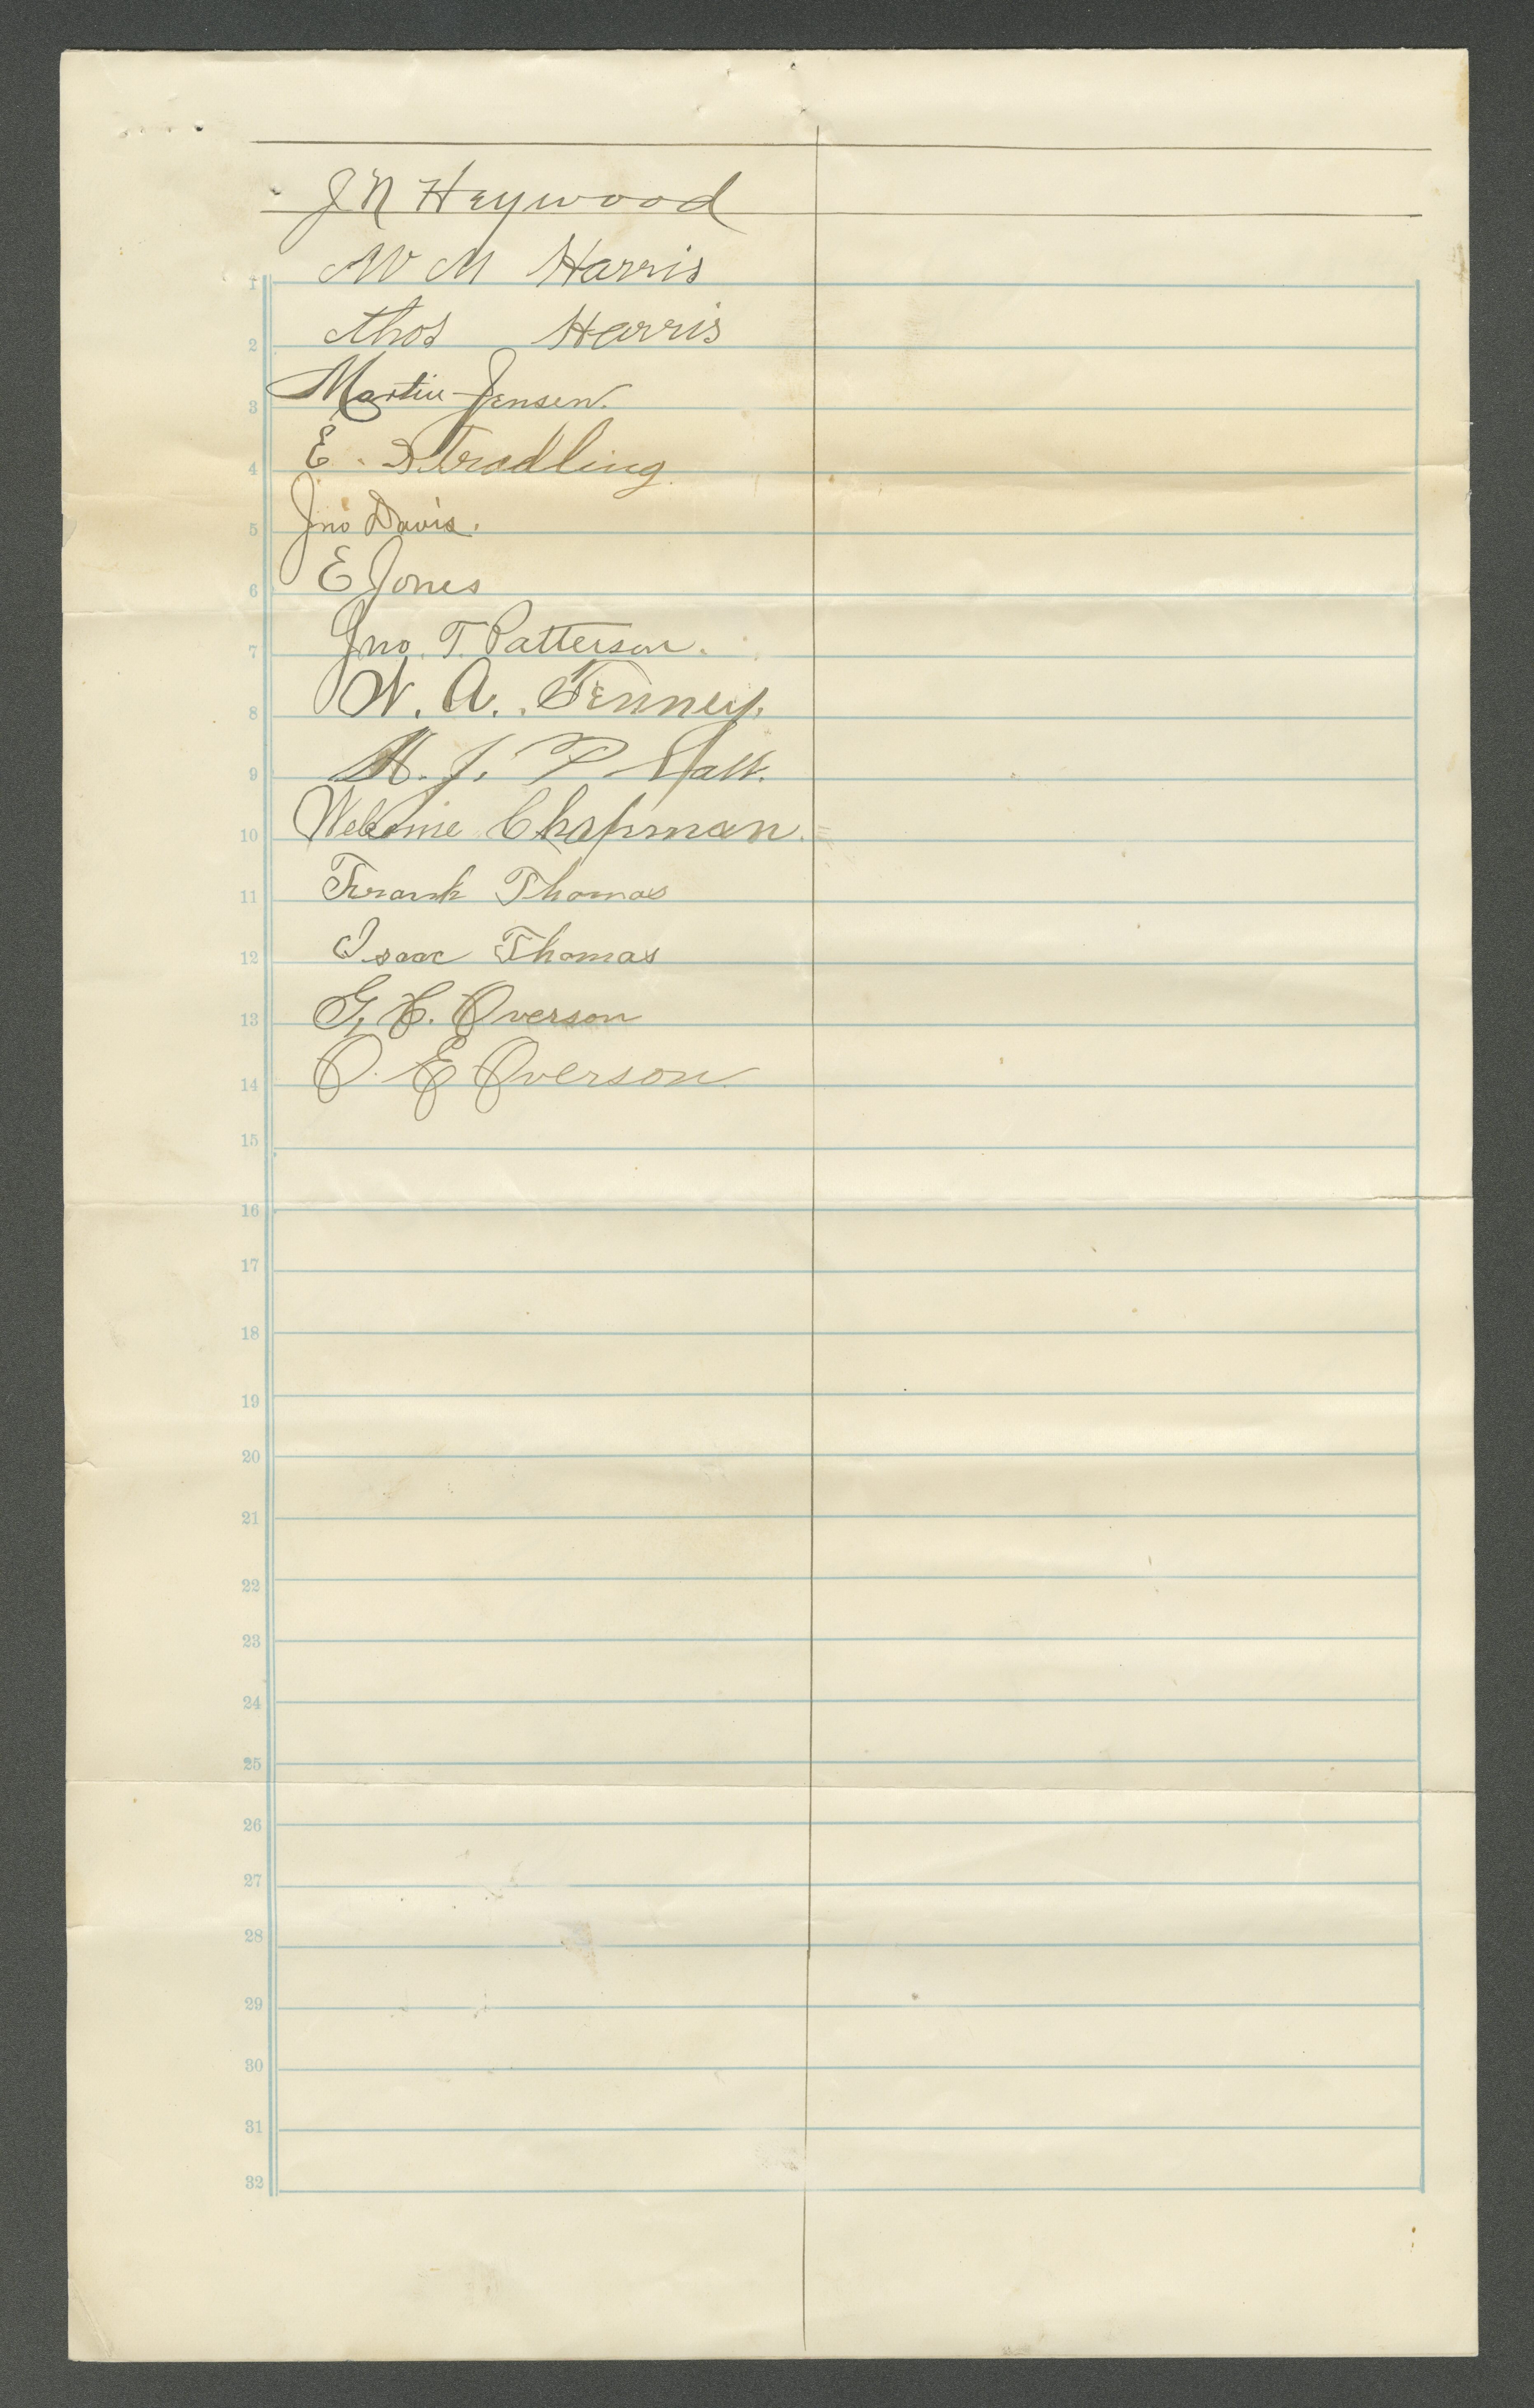 J N Heywood
1 W M Harris
2 Thos Harris
3 Martin Jensen.
4 E. Stradling.
5 Jno Davis.
6 E Jones
7 Jno. T. Patterson.
8 W. A. Tenney.
9 J. P
10 Welcome Chapman.
11 Frank Thomas
12 Isaac Thomas
13 G, H. Overson
14 O. E Overson
15
16
17
18
19
20
21
22
23
24
25
26
27
28
29
30
31
32